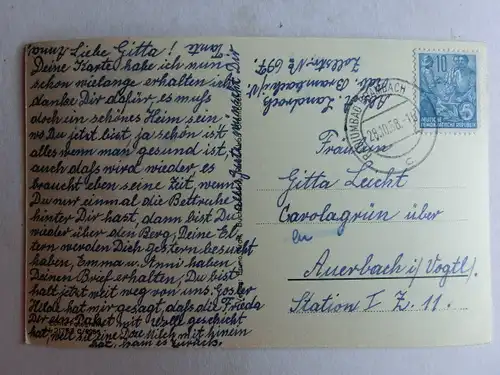 Liebe Gitta!
Deine Karte habe ich nun
schon wielange erhalten ich
danke Dir dafür es muß
doch ein schönes Heim sein
wo Du jetzt bist, ja schön ist
alles wenn man gesund ist,
auch daß wird wieder, es
braucht eben seine Zeit, wenn
Du nur einmal die Bettruhe
hinter Dir hast, dann bist Du
wieder über den Berg, Deine El-
tern werden Dich gestern besucht
haben, Emma u. Anni haben
Deinen Brief erhalten, Du bist
halt jetzt weit weg von uns.
Hilde hat mir gesagt, daß die Frieda
Dir ein Paket mit geschickt
hat, weil sie eine Dose Milch mit hinein
hat, kam es zurück.
alles Gute wünscht Dir
Tante
Anna
Abs. Landrock
Rdb. Brambach/V.
Zollstr. № 697.
RADIUMBAD BRAMBACH
29.10.58.
c
10
5
DEUTSCHE
DEMOKRATISCHE REPUBLIK
Fräulein
Gitta Leicht
Carolagrün über
in
Auerbach i/Vogtl.
Station I Z. 11.